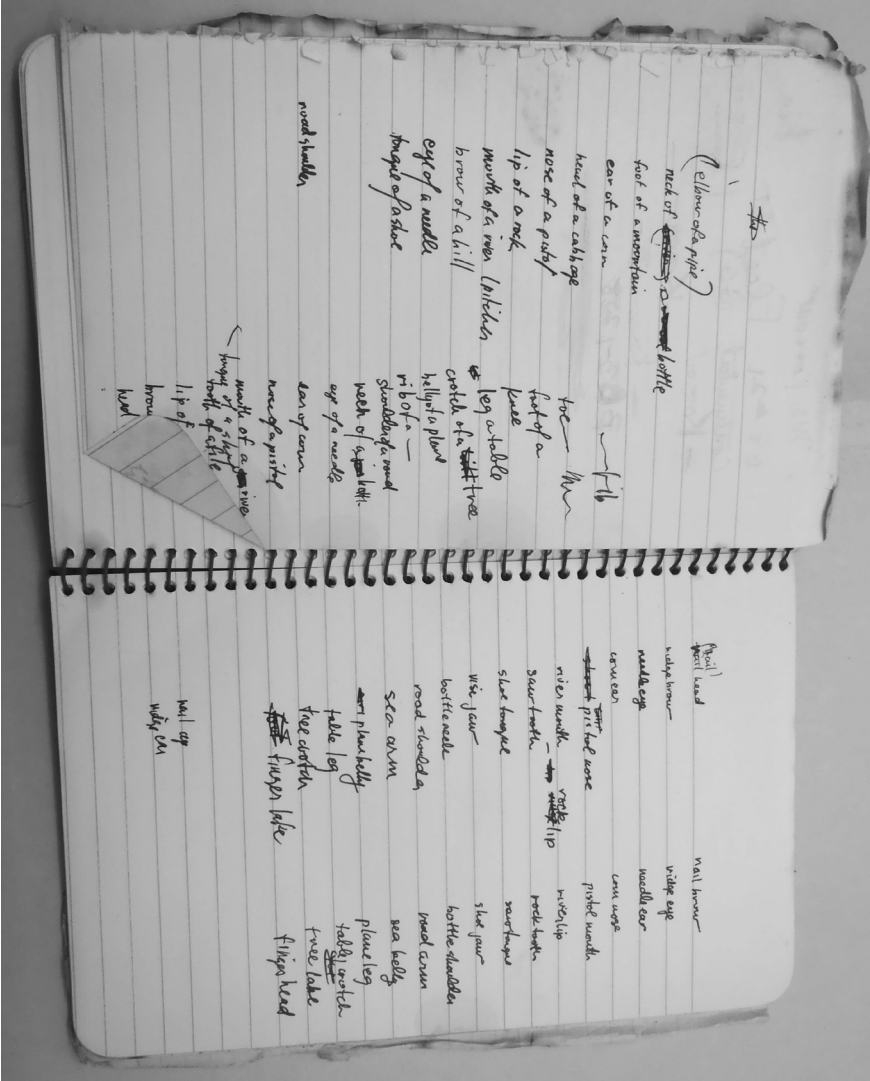 (elbow of a pipe)
neck of a bottle
foot of a mountain
ear of a corn
head of a cabbage
nose of a pistol
lip of a rock
mouth of a river (pitcher
brow of a hill
eye of a needle
tongue of a shoe
road shoulder
rib
toe
foot of a
knee
leg a table
crotch of a tree
belly of a plane
rib of a —
shoulder of a road
neck of a bottle
eye of a needle
ear of corn
nose of a pistol
mouth of a river
tongue of a shoe
tooth of a file
lip of
brow
head
(nail)
nail head
ridge brow
needle eye
corn ear
pistol nose
river mouth rock lip
saw tooth
shoe tongue
vise jaw
bottle neck
road shoulder
sea arm
plane belly
table leg
tree crotch
finger lake
nail eye
nail brow
ridge eye
needle ear
corn nose
pistol mouth
river lip
rock tooth
saw tongue
shoe jaw
bottle shoulder
road arm
sea belly
plane leg
table crotch
tree lake
finger head